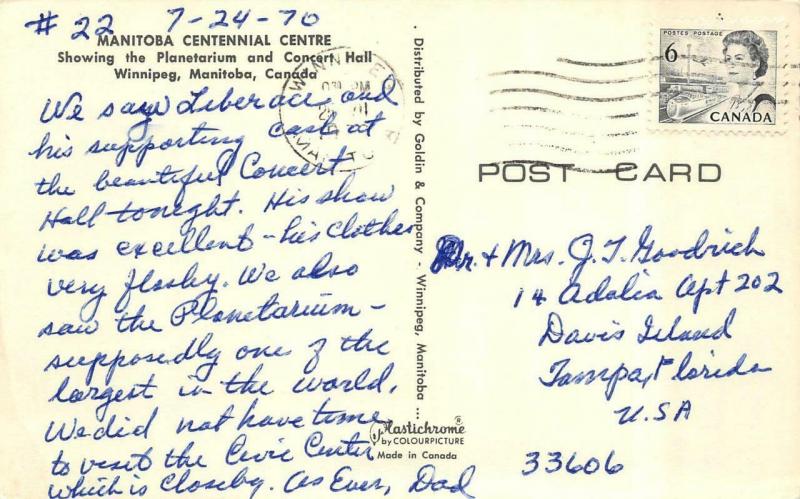 # 22 7-24-70
MANITOBA CENTENNIAL CENTRE
Showing the Planetarium and Concert Hall
Winnipeg, Manitoba, Canada
We saw Liberace, and
his supporting cast at
the beautiful Concert
Hall tonight. His show
was excellent - his clothes
very flashy. We also
saw the Planetarium -
supposedly one of the
largest in the world.
We did not have time
to visit the Civic Center
which is closeby. As Ever, Dad
Distributed by Goldin & Company - Winnipeg, Manitoba ...
Plastichrome®
by COLOURPICTURE
Made in Canada
POSTES POSTAGE
6
CANADA
POST CARD
Mr. + Mrs. J. T. Goodrich
14 Adalia Apt 202
Davis Island
Tampa, Florida
U.S.A
33606